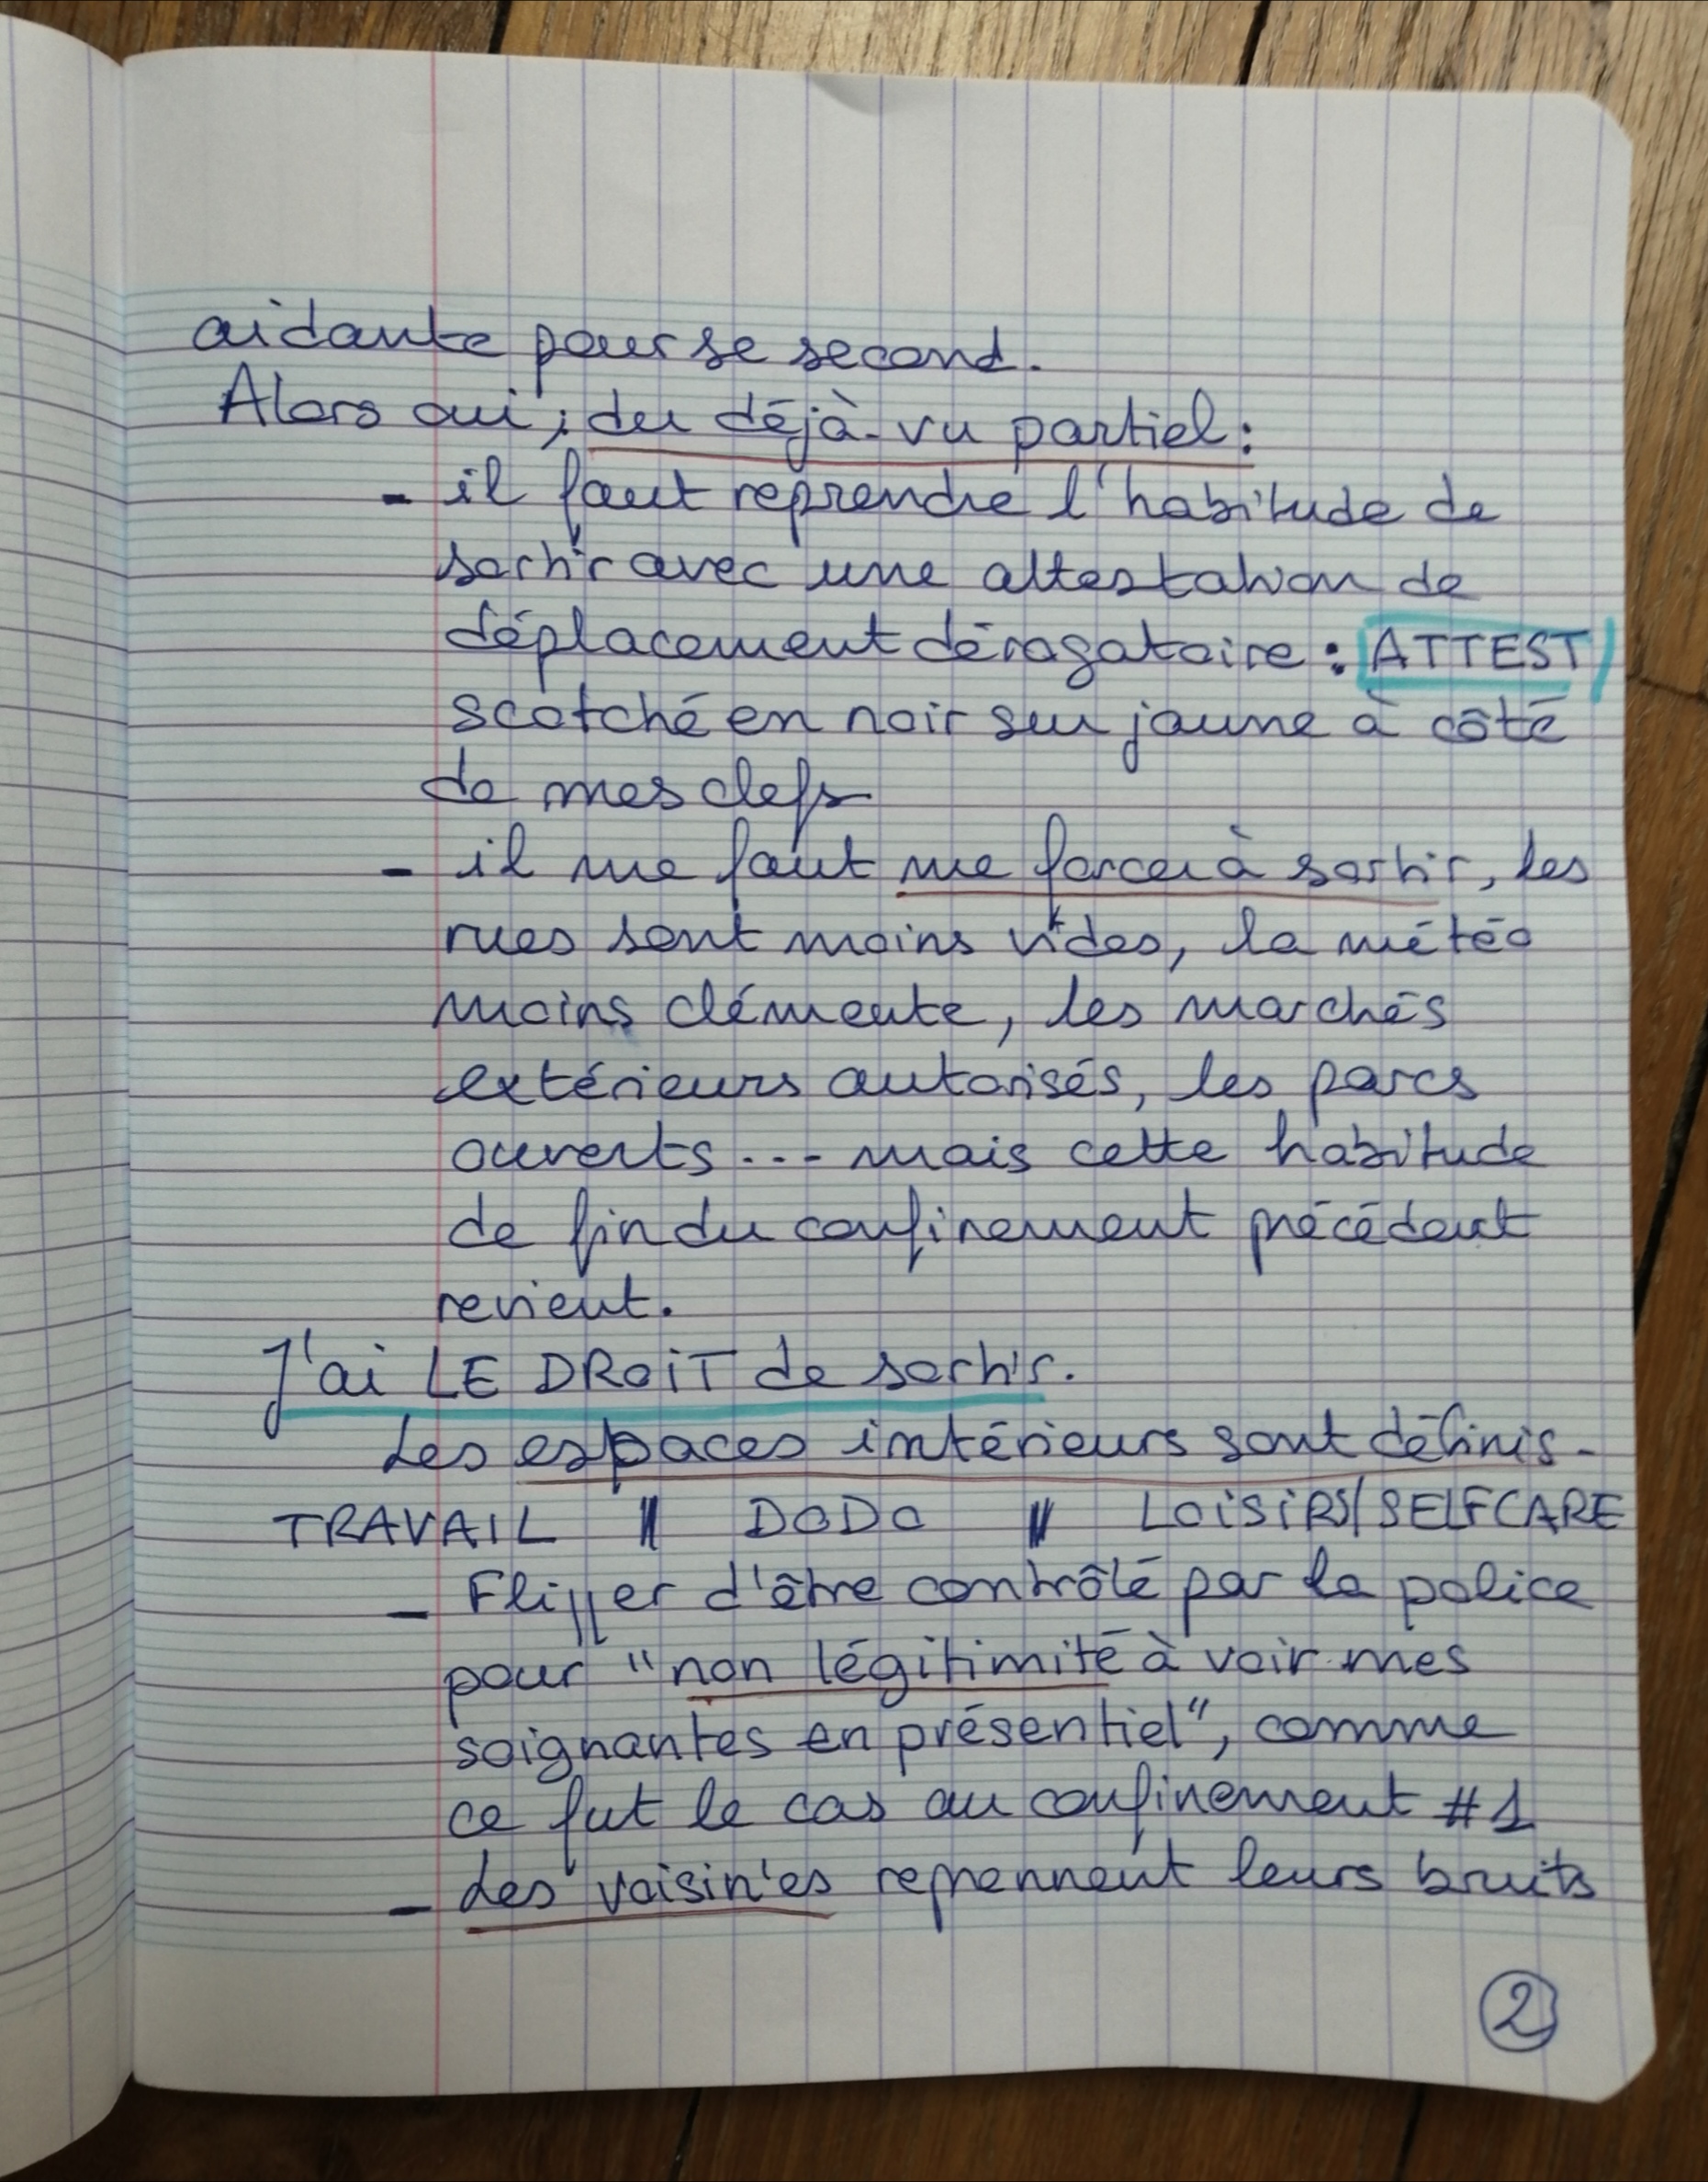 aidante pour se second.
Alors oui, du déjà-vu partiel :
- il faut reprendre l'habitude de
sortir avec une attestation de
déplacement dérogatoire : ATTEST
scotché en noir sur jaune à côté
de mes clefs
- il me faut me forcer à sortir, les
rues sont moins vides, la météo
moins clémente, les marchés
extérieurs autorisés, les parcs
ouverts... mais cette habitude
de fin du confinement précédent
revient.
J'ai LE DROIT de sortir.
Les espaces intérieurs sont définis.
TRAVAIL || DODO || LOISIRS/SELFCARE
- Flipper d'être contrôlé par la police
pour "non légitimité à voir mes
soignantes en présentiel", comme
ce fut le cas au confinement #1
- Les voisin'es reprennent leurs bruits
2